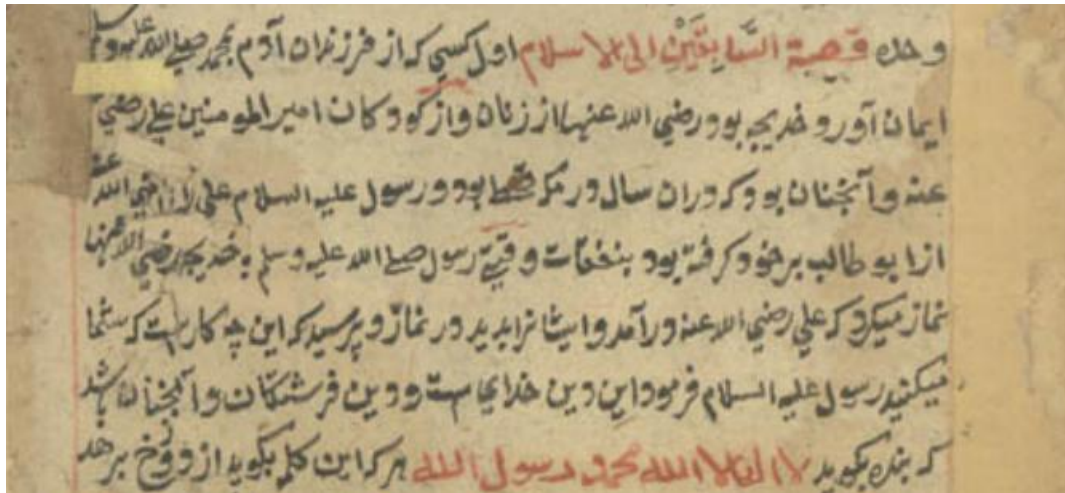 وحده قصة السَّابِقِينَ الی الاسلام اول کسی که از فرزندان آدم بمحمد صلے الله علیه وسلم
ایمان آورد خدیجه بود رضي الله عنها از زنان و از کودکان امیر المومنین علي رضي
عنه و آنچنان بود که دران سال در مکه قحط بود و رسول علیه السلام علی را رضي الله عنه
از ابو طالب بر خود گرفته بود بنفقات وقتے رسول صلے الله علیه وسلم با خدیجه رضي الله عنها
نماز میکرد که علي رضي الله عنه در آمد و ایشانرا بدید در نماز و پرسید که این چه کارست که شما
میکنید رسول علیه السلام فرمود این دین خدایست و دین فرشتکان و آنچنان باشد
که بنده بکوید لا اله الا الله محمد رسول الله هر که این کلمه بکوید از دوزخ برهد